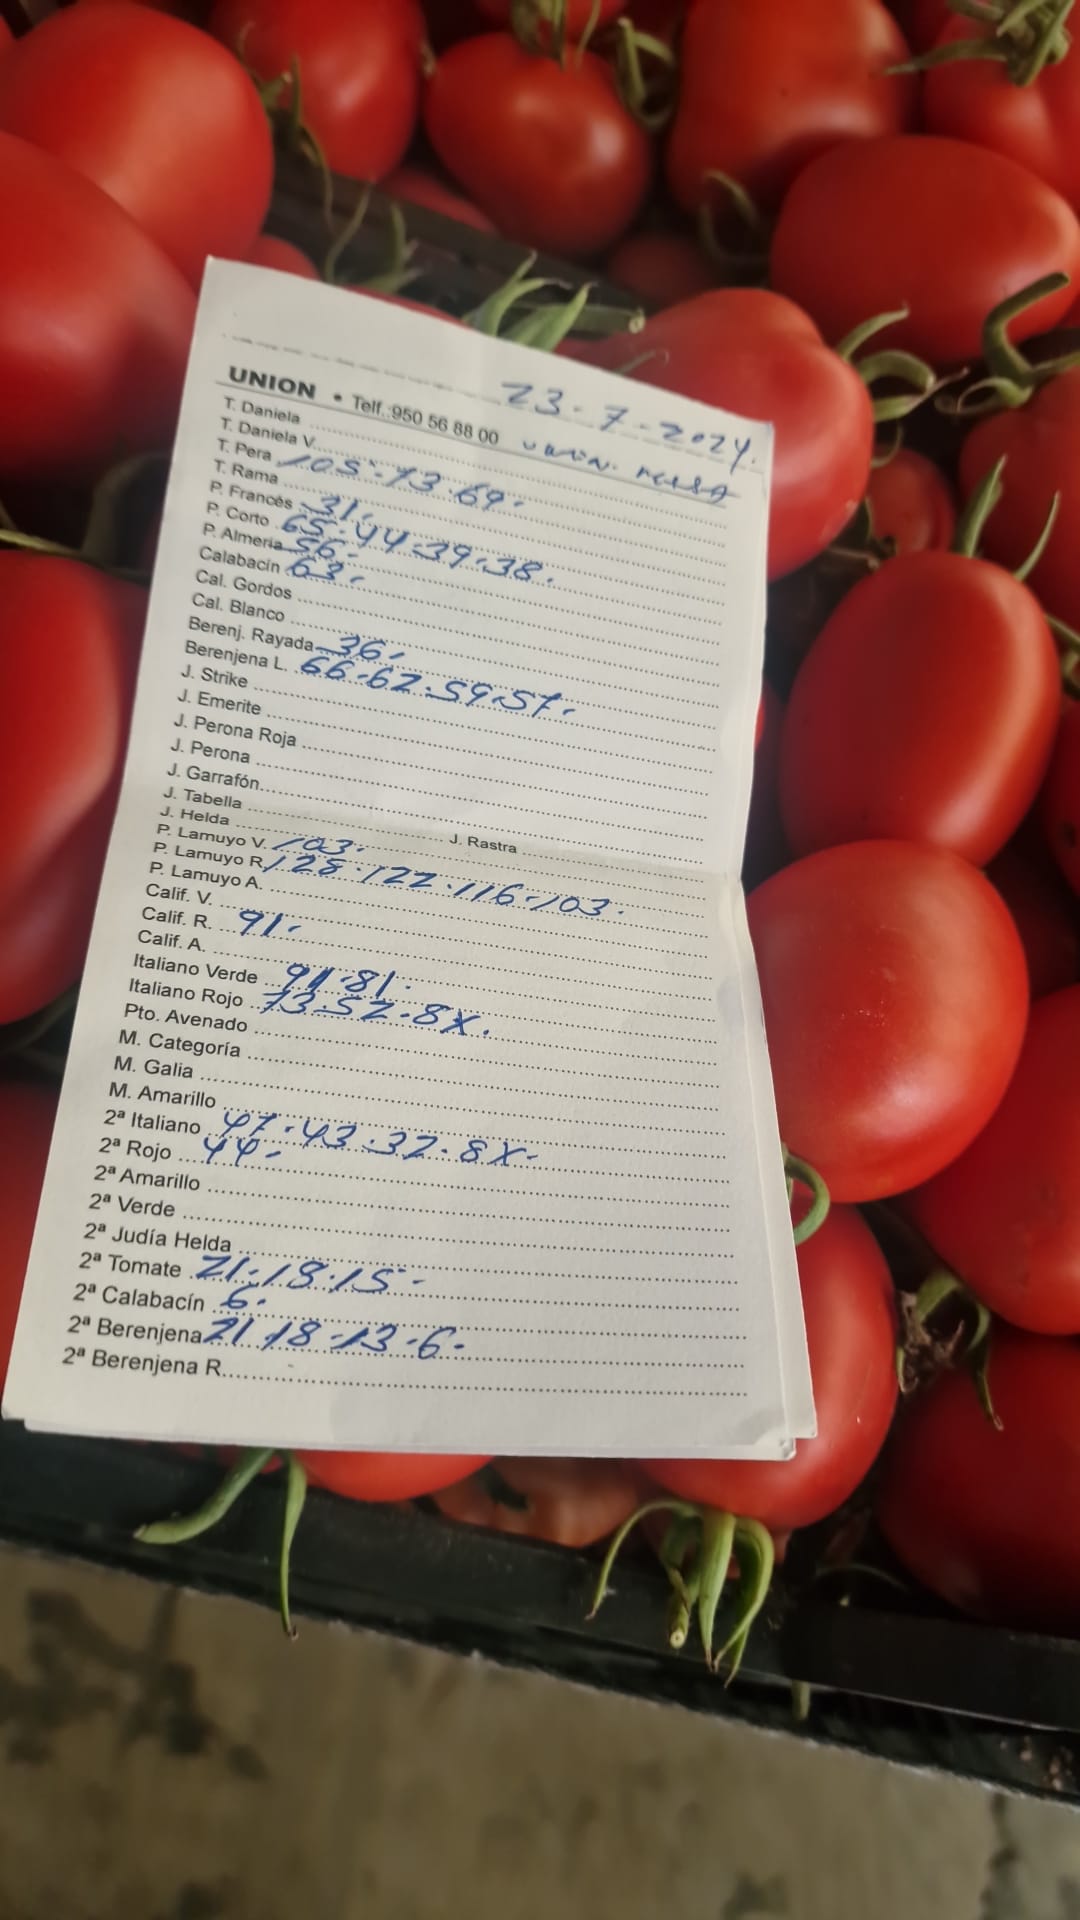 23-7-2024.
UNION • Telf.:950 56 88 00
T. Daniela
T. Daniela V.
T. Pera 105.73.69.
T. Rama
P. Francés 31.
P. Corto 65.44.39.38.
P. Almería 56.
Calabacín 63.
Cal. Gordos
Cal. Blanco
Berenj. Rayada 36.
Berenjena L. 66.62.59.57.
J. Strike
J. Emerite
J. Perona Roja
J. Perona
J. Garrafón
J. Tabella
J. Helda J. Rastra
P. Lamuyo V. 103.
P. Lamuyo R. 128.122.116.103.
P. Lamuyo A.
Calif. V.
Calif. R. 91.
Calif. A.
Italiano Verde 91.81.
Italiano Rojo 73.52.8X.
Pto. Avenado
M. Categoría
M. Galia
M. Amarillo
2ª Italiano 47.43.32.8X-
2ª Rojo 44-
2ª Amarillo
2ª Verde
2ª Judía Helda
2ª Tomate 21.18.15-
2ª Calabacín 6.
2ª Berenjena 21.18.13.6.
2ª Berenjena R.